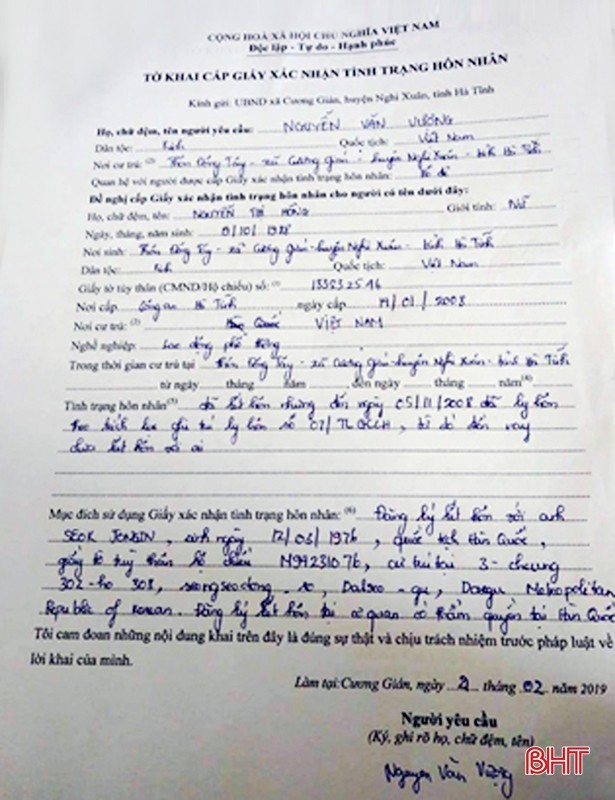 CỘNG HOÀ XÃ HỘI CHỦ NGHĨA VIỆT NAM
Độc lập - Tự do - Hạnh phúc
TỜ KHAI CẤP GIẤY XÁC NHẬN TÌNH TRẠNG HÔN NHÂN
Kính gửi: UBND xã Cương Gián, huyện Nghi Xuân, tỉnh Hà Tĩnh
Họ, chữ đệm, tên người yêu cầu: NGUYỄN VĂN VƯỢNG
Dân tộc: Kinh Quốc tịch: Việt Nam
Nơi cư trú: (2) Thôn Đông Tây - xã Cương Gián - huyện Nghi Xuân - tỉnh Hà Tĩnh
Quan hệ với người được cấp Giấy xác nhận tình trạng hôn nhân:
Đề nghị cấp Giấy xác nhận tình trạng hôn nhân cho người có tên dưới đây:
Họ, chữ đệm, tên: NGUYỄN THỊ HỒNG Giới tính: Nữ
Ngày, tháng, năm sinh:
Nơi sinh: Thôn Đông Tây - xã Cương Gián - huyện Nghi Xuân - tỉnh Hà Tĩnh
Dân tộc: Kinh Quốc tịch: Việt Nam
Giấy tờ tùy thân (CMND/Hộ chiếu) số:
Nơi cấp Công an Hà Tĩnh ngày cấp /01/2008
Nơi cư trú: (2) Quốc VIỆT NAM
Nghề nghiệp: Lao động phổ thông
Trong thời gian cư trú tại Thôn Đông Tây - xã Cương Gián - huyện Nghi Xuân - tỉnh Hà Tĩnh
từ ngày tháng năm đến ngày tháng năm (4)
Tình trạng hôn nhân (5) đã kết hôn nhưng đến ngày 05/11/2008 đã ly hôn
theo trích lục ghi chú ly hôn số 07/TLGCLH, từ đó đến nay
chưa kết hôn với ai
Mục đích sử dụng Giấy xác nhận tình trạng hôn nhân: (6) Đăng ký kết hôn với anh
SEOK JONGIN, sinh ngày 12/03/1976, quốc tịch Hàn Quốc,
giấy tờ tuỳ thân hộ chiếu M94231076, cư trú tại 3-chung
302-ho 308, seongseodong-ro, Dalseo-gu, Daegu, Metropolitan
Republic of Korean. Đăng ký kết hôn tại cơ quan có thẩm quyền tại Hàn Quốc
Tôi cam đoan những nội dung khai trên đây là đúng sự thật và chịu trách nhiệm trước pháp luật về
lời khai của mình.
Làm tại: Cương Gián, ngày 2 tháng 02 năm 2019
Người yêu cầu
(Ký, ghi rõ họ, chữ đệm, tên)
Nguyen Văn Vượng
BHT